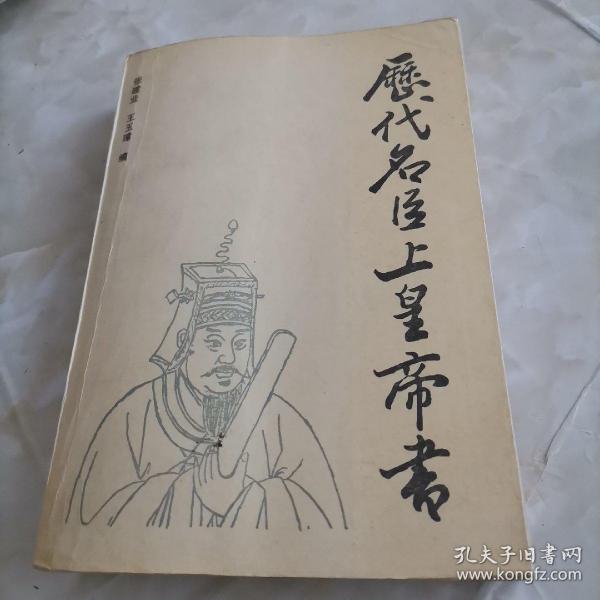 歷代名臣上皇帝書
张建业 王玉璋 编
孔夫子旧书网
www.kongfz.com